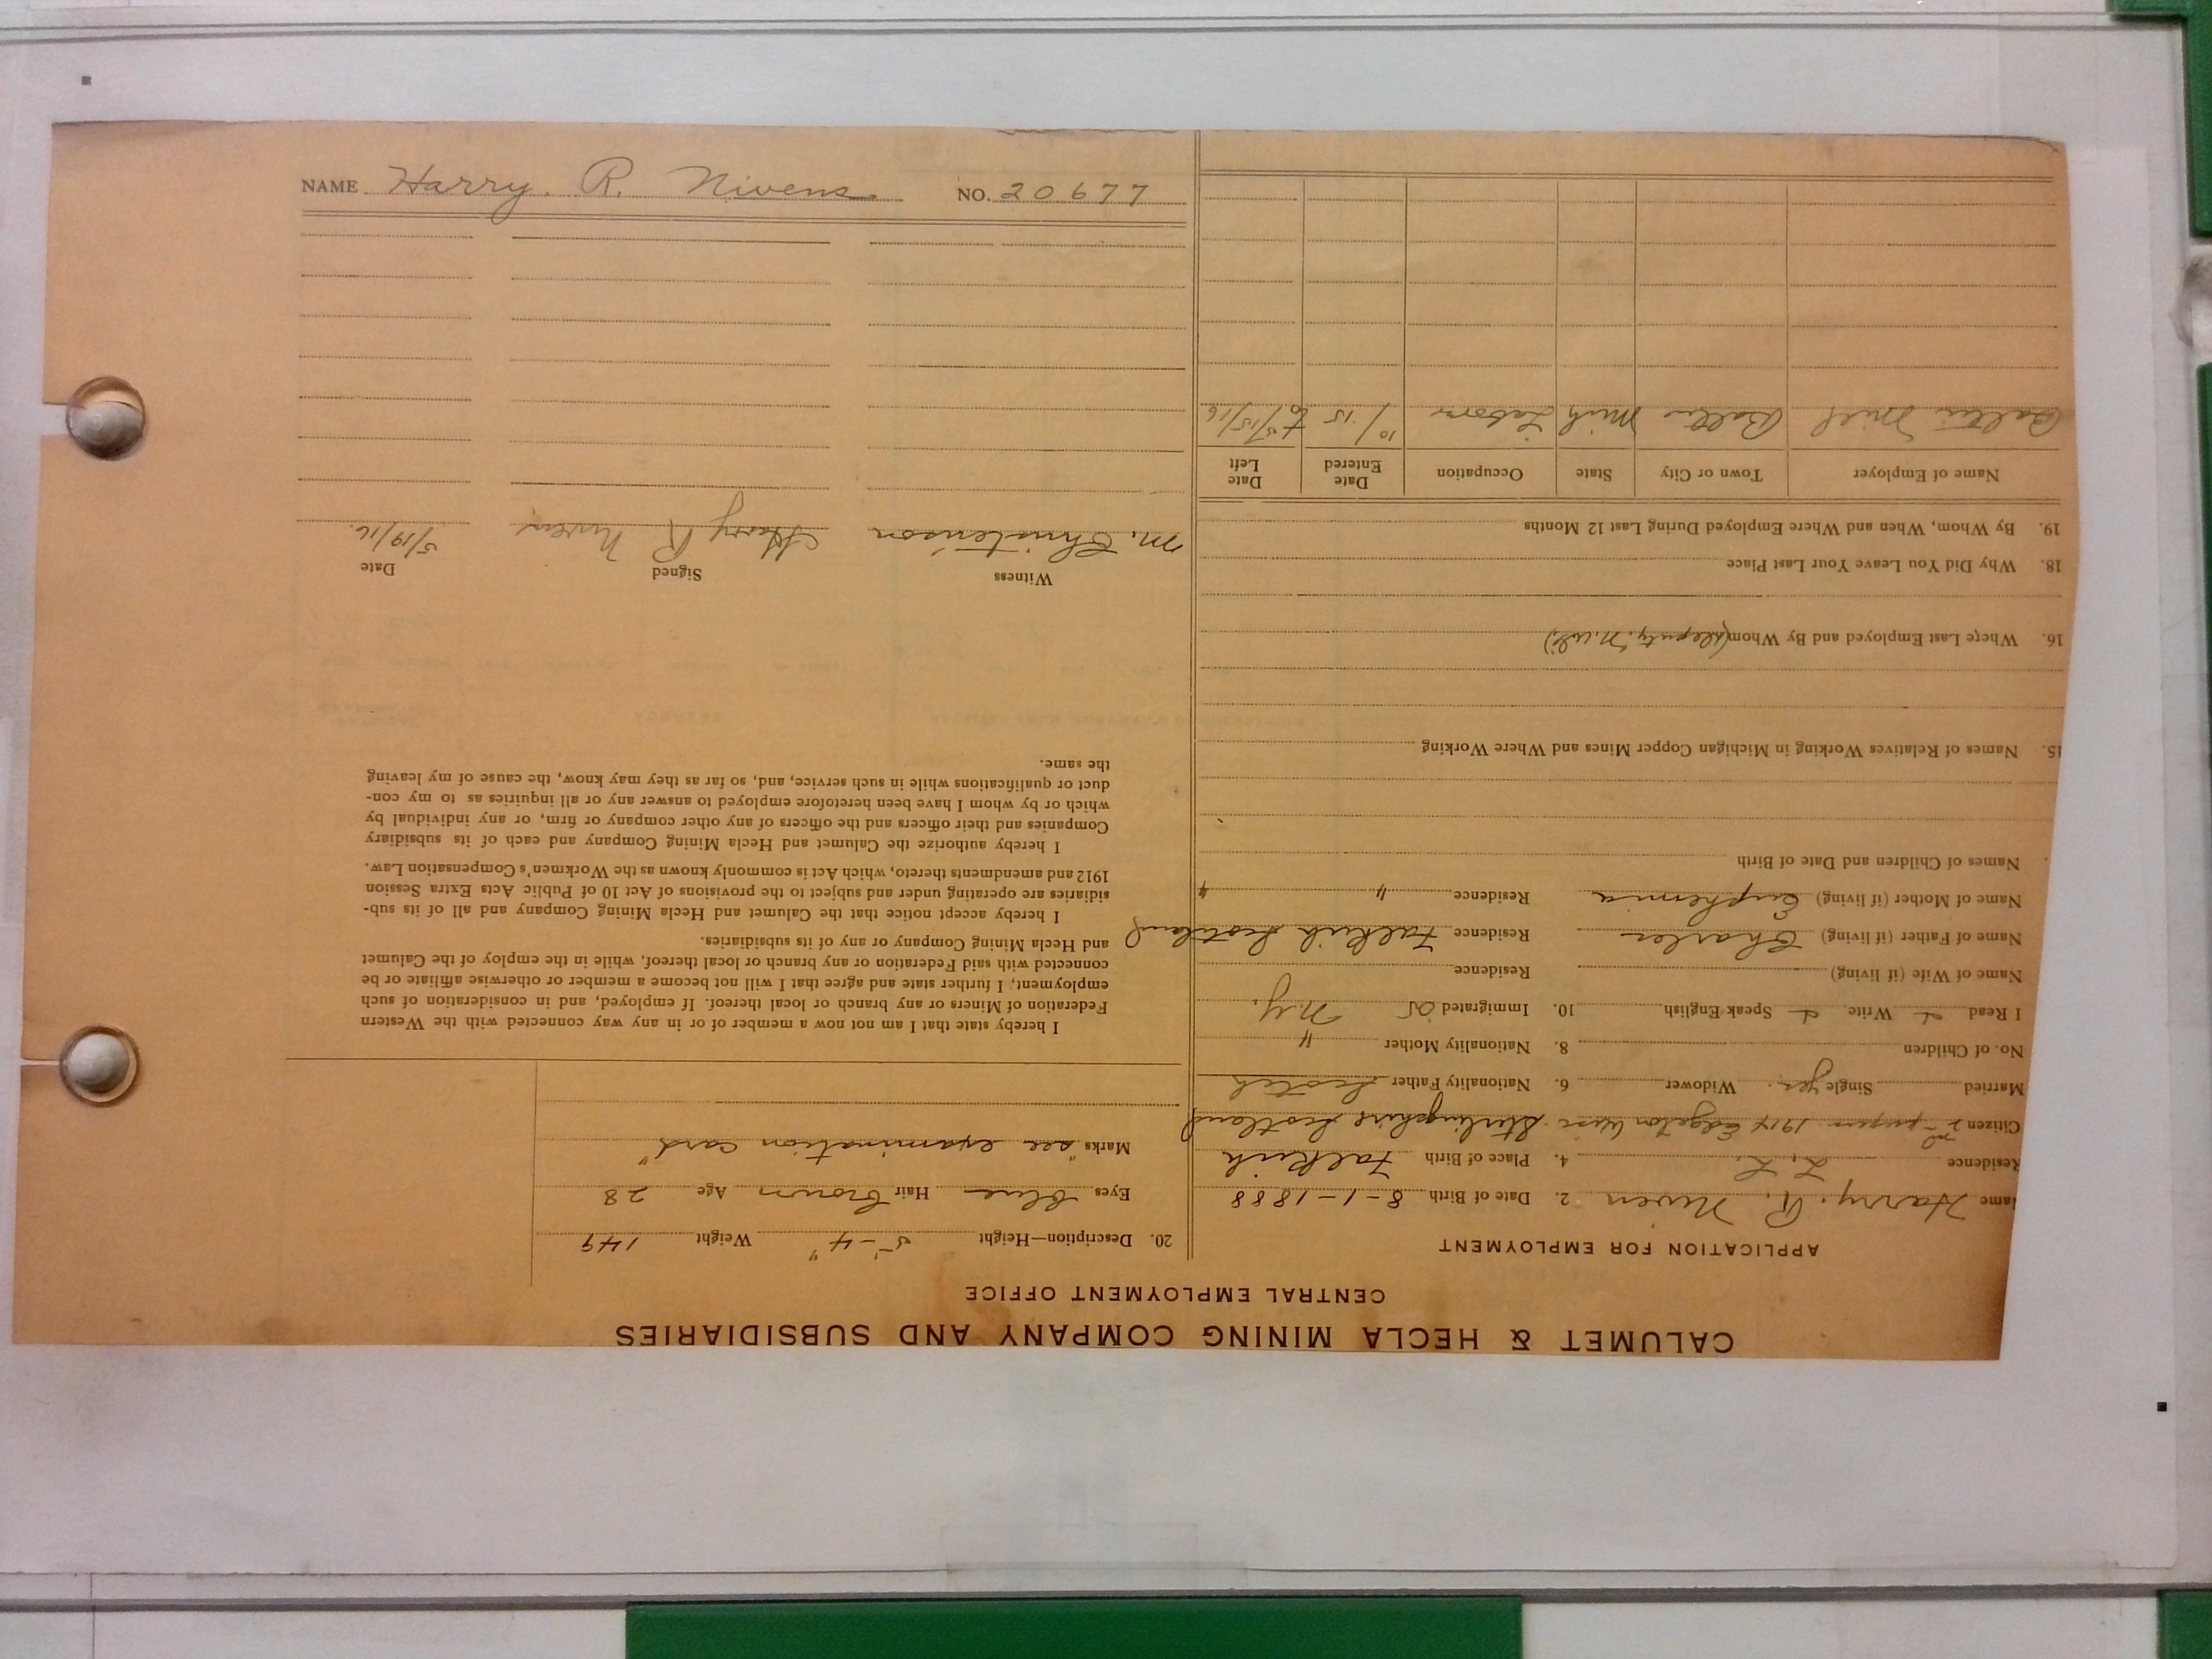 CALUMET & HECLA MINING COMPANY AND SUBSIDIARIES
CENTRAL EMPLOYMENT OFFICE
APPLICATION FOR EMPLOYMENT
ame Harry. R. Niven 2. Date of Birth 8-1-1888
Residence L. L. 4. Place of Birth Falkirk
Citizen 2nd papers 1914 Wisc. Stirlingshire Scotland
Married Single yes. Widower 6. Nationality Father Scotch
No. of Children 8. Nationality Mother "
I Read + Write, + Speak English 10. Immigrated 05 N.Y.
Name of Wife (if living) Residence
Name of Father (if living) Charles Residence Falkirk Scotland
Name of Mother (if living) Euphemia Residence " "
Names of Children and Date of Birth
15. Names of Relatives Working in Michigan Copper Mines and Where Working
16. Where Last Employed and By Whom
18. Why Did You Leave Your Last Place
19. By Whom, When and Where Employed During Last 12 Months
Name of Employer Town or City State Occupation Date Entered Date Left
Baltic Mill Baltic Mich Labor 10/15 to 5/15/16
20. Description—Height 5'-4" Weight 149
Eyes Blue Hair Brown Age 28
Marks "see examination card"
I hereby state that I am not now a member of or in any way connected with the Western
Federation of Miners or any branch or local thereof. If employed, and in consideration of such
employment, I further state and agree that I will not become a member or otherwise affiliate or be
connected with said Federation or any branch or local thereof, while in the employ of the Calumet
and Hecla Mining Company or any of its subsidiaries.
I hereby accept notice that the Calumet and Hecla Mining Company and all of its sub-
sidiaries are operating under and subject to the provisions of Act 10 of Public Acts Extra Session
1912 and amendments thereto, which Act is commonly known as the Workmen's Compensation Law.
I hereby authorize the Calumet and Hecla Mining Company and each of its subsidiary
Companies and their officers and the officers of any other company or firm, or any individual by
which or by whom I have been heretofore employed to answer any or all inquiries as to my con-
duct or qualifications while in such service, and, so far as they may know, the cause of my leaving
the same.
Witness Signed Date
M. Christenson Harry R Niven 5/19/16.
NAME Harry. R. Nivens. NO. 20677